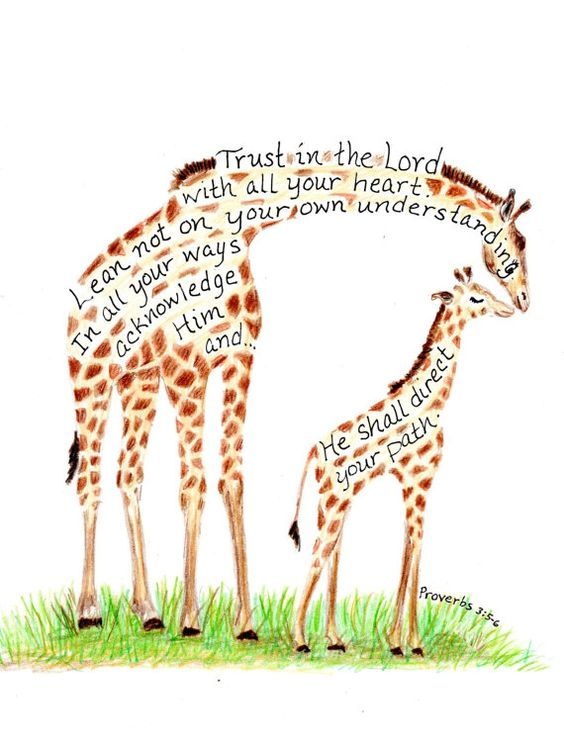 Trust in the Lord
with all your heart.
Lean not on your own understanding.
In all your ways
acknowledge
Him
and...
He shall direct
your path.
Proverbs 3:5-6